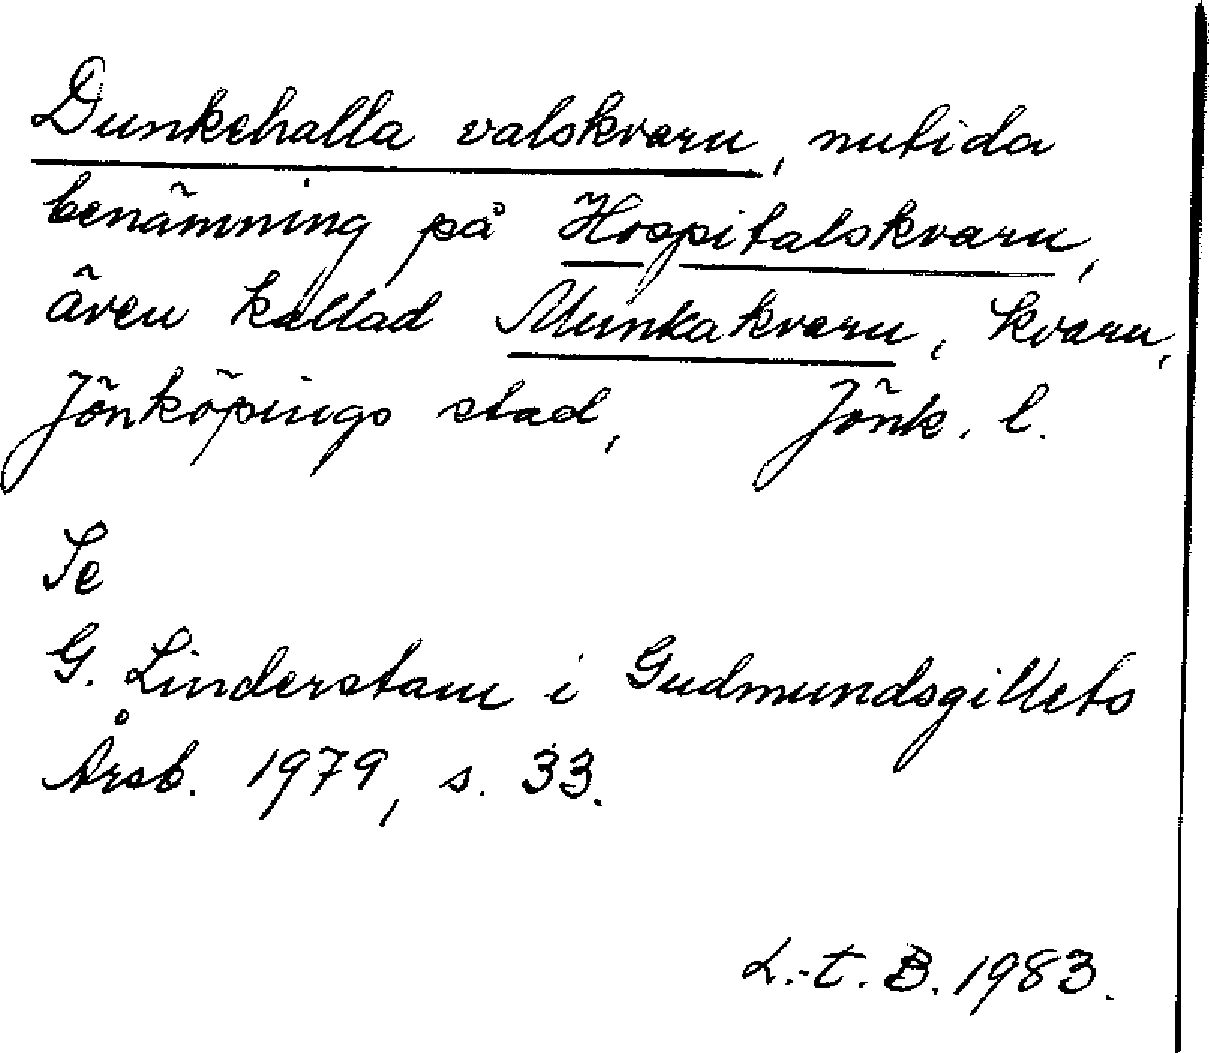 Dunkehalla valskvarn, nutida
benämning på Hospitalskvarn,
även kallad Munkakvarn, kvarn,
Jönköpings stad, Jönk. l.
Se
G. Linderstam i Gudmundsgillets
Årsb. 1979, s. 33.
L.-t. B. 1983.